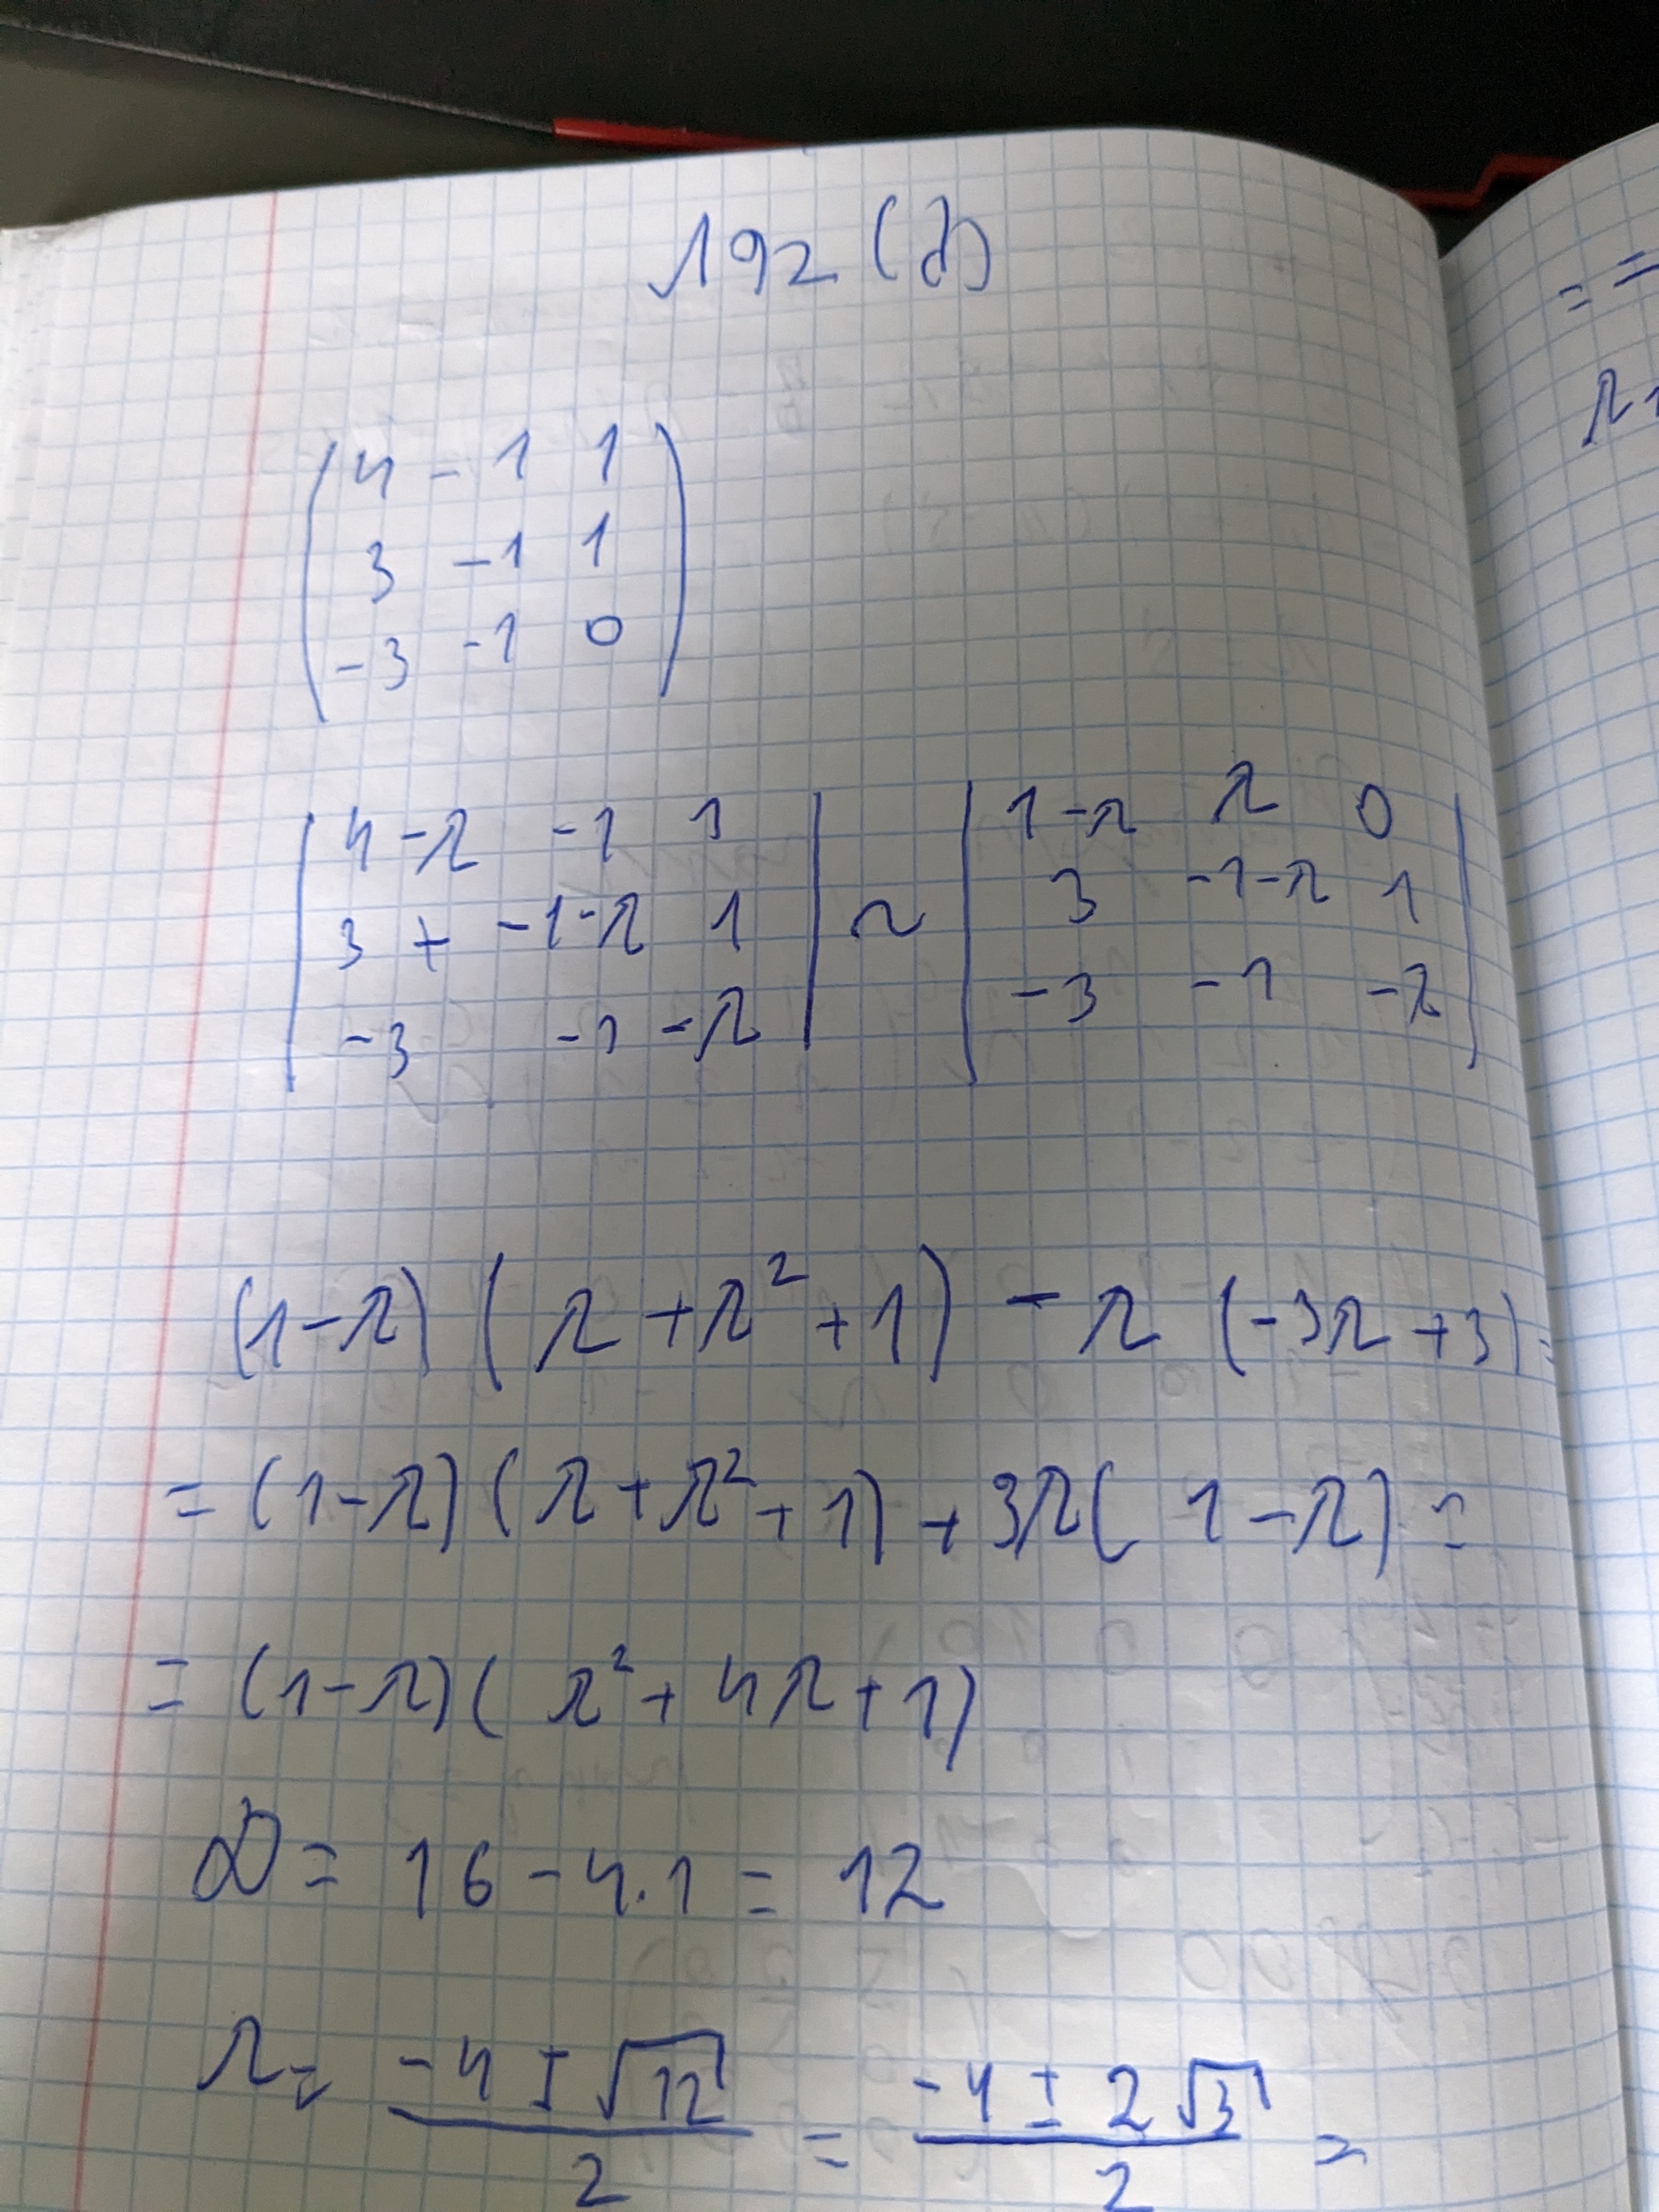 192 (д)
( 4 -1 1 )
( 3 -1 1 )
( -3 -1 0 )
| 4-λ -1 1 | ~ | 1-λ λ 0 |
| 3 + -1-λ 1 | | 3 -1-λ 1 |
| -3 -1 -λ | | -3 -1 -λ |
(1-λ) (λ+λ²+1) - λ (-3λ+3) =
= (1-λ) (λ+λ²+1) + 3λ (1-λ) =
= (1-λ) (λ²+4λ+1)
D = 16 - 4·1 = 12
λ = (-4 ± √12)/2 = (-4 ± 2√3)/2 =
= =